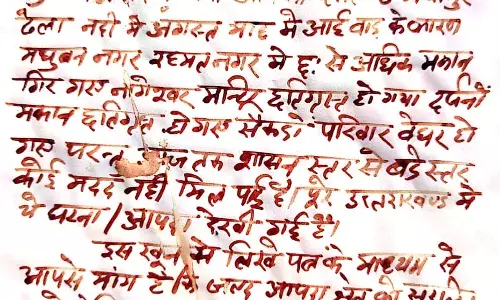 ढेला नदी मे अगस्त माह मे आई बाड के कारण
मधुबन नगर रहमत नगर मे छः से अधिक मकान
गिर गए नागेश्वर मान्दिर छतिग्रस्त हो गया दर्जनों
मकान छतिग्रस्त हो गए सैकडो परिवार वेघर हो
गए तक शासन स्तर से बडे स्तर
कोई मदद नही मिल पाई है। पूरे उत्तराखण्ड मे
ये घटना / आपदा देखी गई है।
इस खून से लिखे पत्र के माध्यम से
आपसे मांग है जल्द आपदा